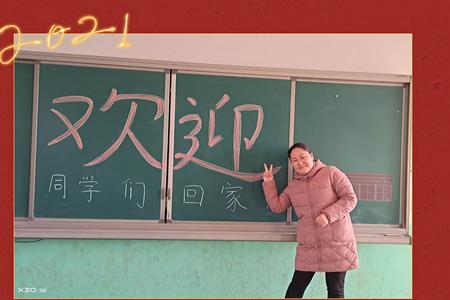 2021
欢迎
同学们回家
X30